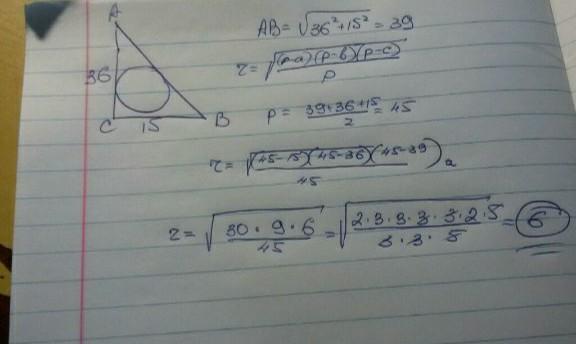 A
36
C 15 B
AB = √36²+15² = 39
r = √(p-a)(p-b)(p-c) / p
p = 39+36+15 / 2 = 45
r = √(45-15)(45-36)(45-39) / 45 =
r = √30·9·6 / 45 = √2·3·3·3·3·2·5 / 3·3·5 = 6